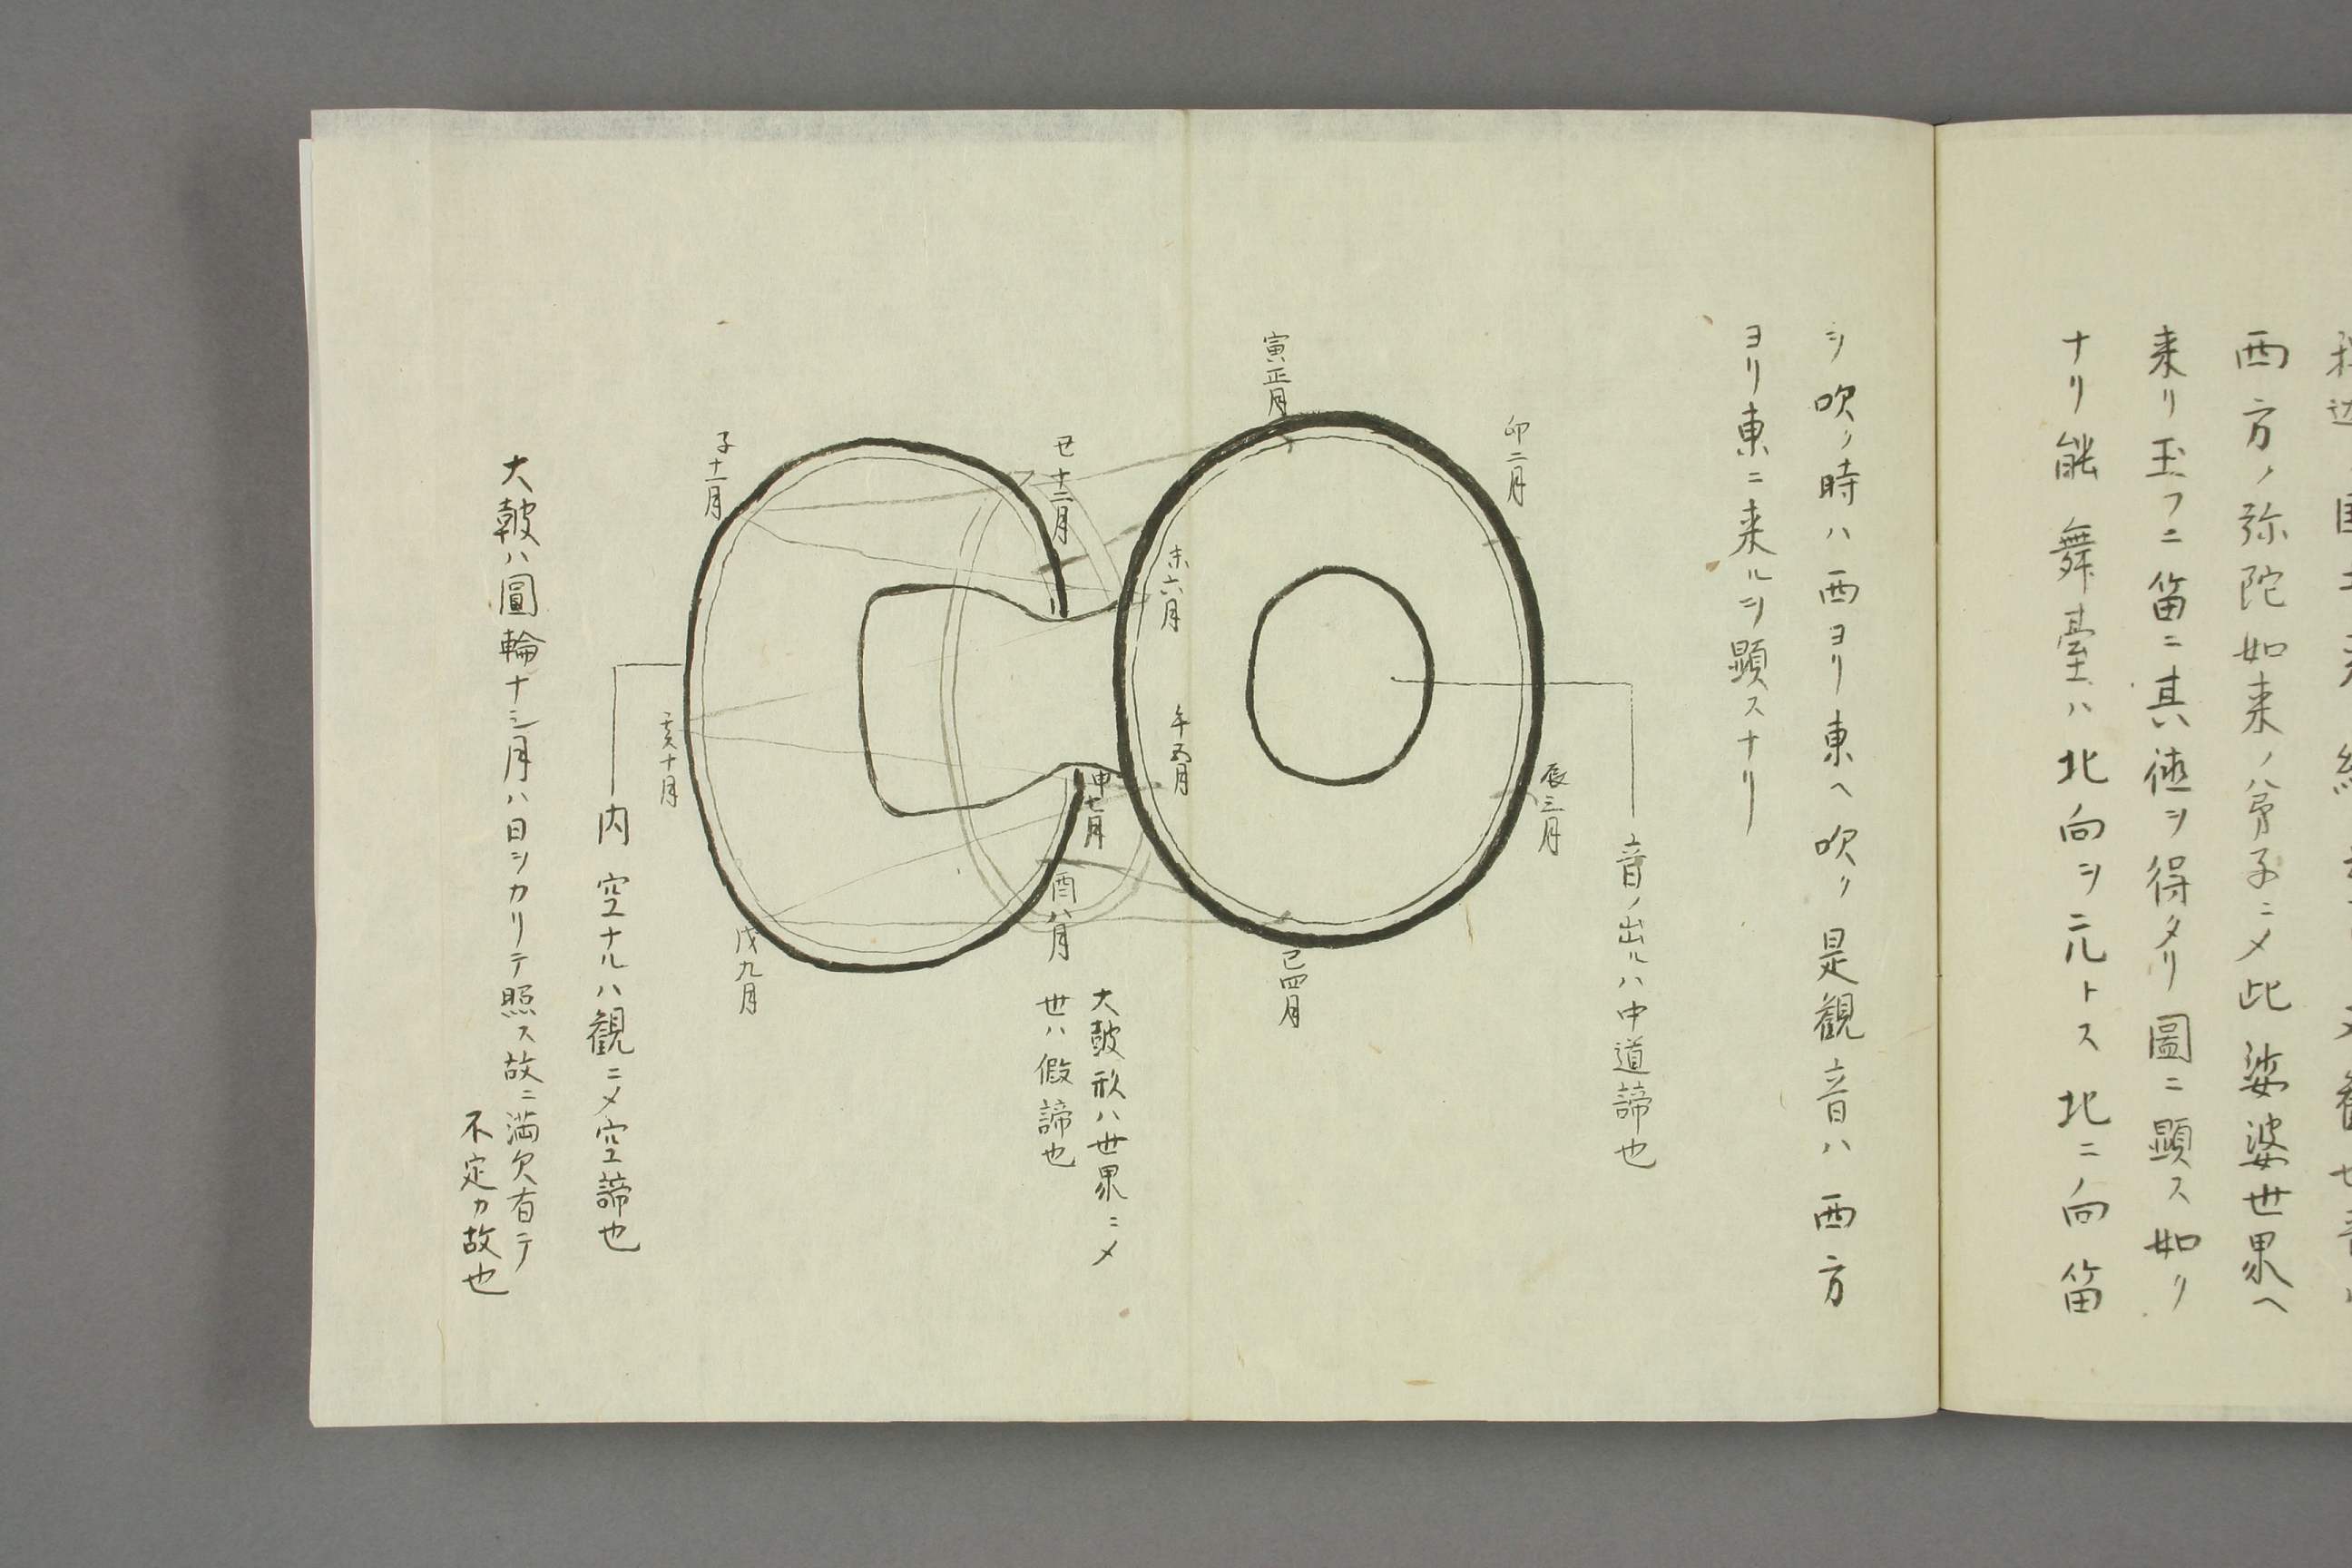 西方ノ弥陀如来ノ弟子ニメ此娑婆世界ヘ
来リ玉フニ笛ニ其徳ヲ得タリ圖ニ顕ス如リ
ナリ能舞臺ハ北向ヲ元トス北ニ向笛
ヲ吹ク時ハ西ヨリ東ヘ吹ク是観音ハ西方
ヨリ東ニ来ルヲ顕スナリ
音ノ出ルハ中道諦也
卯二月
辰三月
寅正月
巳四月
未六月
午五月
申七月
丑十二月
酉八月
大皷形ハ世界ニメ
世ハ假諦也
子十一月
戌九月
亥十月
内空ナルハ観ニメ空諦也
大皷ハ圓輪ナシ月ハ日ヲカリテ照ス故ニ満欠有テ
不定カ故也